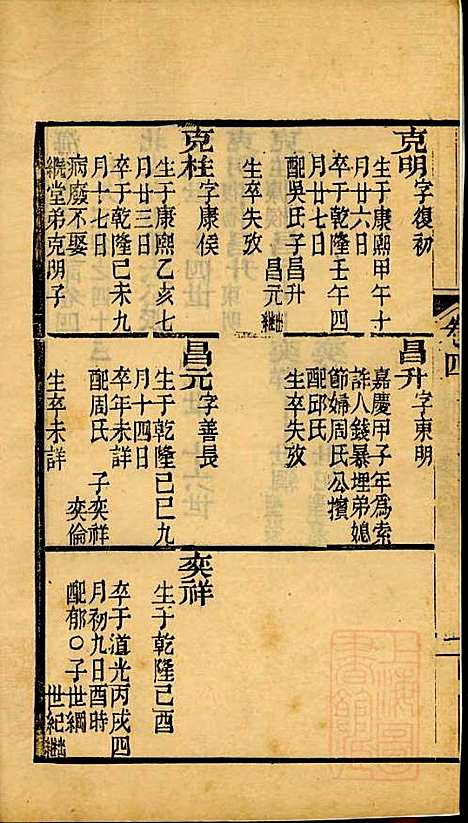 克明字復初
生于康熙甲午十
月廿六日
卒于乾隆壬午四
月廿七日
配吳氏子昌升
昌元出継
生卒失攷
克柱字康侯
生于康熙乙亥七
月廿三日
卒于乾隆己未九
月十七日
病廢不娶
継堂弟克明子
昌升字東明
嘉慶甲子年為索
詐人錢暴埋弟媳
節婦周氏公擯
配邱氏
生卒失攷
昌元字善長
生于乾隆己巳九
月十四日
卒年未詳
配周氏 子奕祥
奕倫
生卒未詳
奕祥
生于乾隆己酉
卒于道光丙戌四
月初九日酉時
配郁〇子世綱
世紀出継
卷四